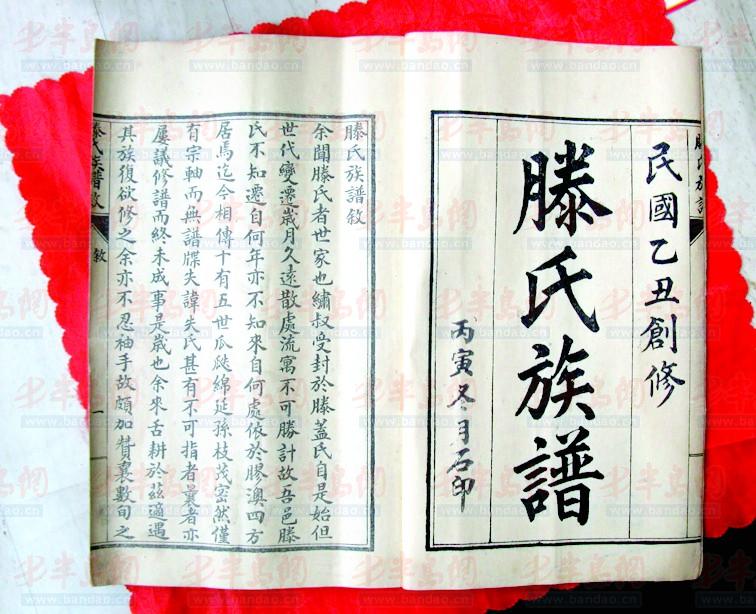 民國乙丑創修
滕氏族譜
丙寅冬月石印
滕氏族譜敘
余聞滕氏者世家也繡叔受封於滕蓋氏自是始但
世代變遷歲月久遠散處流寓不可勝計故吾邑滕
氏不知遷自何年亦不知來自何處依於膠澳四方
居焉迄今相傳十有五世瓜瓞綿延孫枝茂密然僅
有宗軸而無譜牒失諱失氏甚有不可指者曩者亦
屢議修譜而終未成事是歲也余來舌耕於茲適遇
其族復欲修之余亦不忍袖手故頗加贊襄數旬之
滕氏族譜敘
敘
一
滕氏族譜
半島網
www.bandao.cn